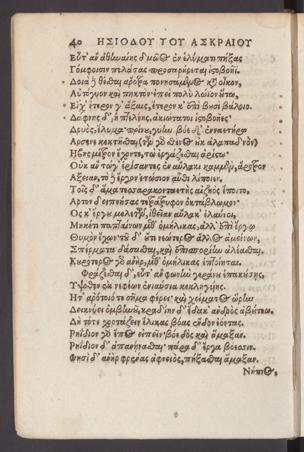 40 ΗΣΙΟΔΟΥ ΤΟΥ ΑΣΚΡΑΙΟΥ
Εὖτ' ἂν ἀθηναίης δμωὸς ἐν ἐλύματι πήξας
Γόμφοισιν πελάσας προσαρήρεται ἱστοβοῆϊ.
Δοιὰ δὲ θέσθαι ἄροτρα πονησάμενος κατ' οἶκον,
Αὐτόγυον καὶ πηκτὸν· ἐπεὶ πολὺ λώϊον οὕτω,
Εἴ χ' ἕτερον γ' ἄξαις, ἕτερον κ' ἐπὶ βουσὶ βάλοιο.
Δάφνης δ', ἢ πτελέης, ἀκιώτατοι ἱστοβοῆες·
Δρυὸς, ἔλυμα· πρίνου, γύην. βόε δ' ἐνναετήρω
Ἄρσενε κεκτῆσθαι, (τῶν γὰρ σθένος οὐκ ἀλαπαδνὸν)
Ἥβης μέτρον ἔχοντε, τὼ ἐργάζεσθαι ἀρίστω.
Οὐκ ἂν τώγ' ἐρίσαντες ἐν αὔλακι καμμὲν, ἄροτρον
Ἄξειαν, τὸ δὲ ἔργον ἐτώσιον αὖθι λίποιεν.
Τοῖς δ' ἅμα τεσσαρακονταετὴς αἰζηὸς ἕποιτο,
Ἄρτον δειπνήσας τετράτρυφον ὀκτάβλωμον·
Ὅς κ' ἔργου μελετῶν, ἰθεῖαν αὔλακ' ἐλαύνοι,
Μηκέτι παπταίνων μεθ' ὁμήλικας, ἀλλ' ἐπὶ ἔργῳ
Θυμὸν ἔχων· τοῦ δ' οὔτι νεώτερος ἄλλος ἀμείνων,
Σπέρματα δάσσασθαι, καὶ ἐπισπορίην ἀλέασθαι.
Κουρότερος γὰρ ἀνὴρ, μεθ' ὁμήλικας ἐπτοίηται.
Φράζεσθαι δ', εὖτ' ἂν φωνὴν γεράνου ἐπακούσης,
Ὑψόθεν ἐκ νεφέων ἐνιαύσια κεκληγυίης.
Ἥτ' ἀρότοιό τε σῆμα φέρει, καὶ χείματος ὥρην
Δεικνύει ὀμβρινοῦ, κραδίην δ' ἔδακ' ἀνδρὸς ἀβούτεω.
Δὴ τότε χορτάζειν ἕλικας βόας ἔνδον ἐόντας.
Ῥηΐδιον γὰρ ἔπος εἰπεῖν· βόε δὸς καὶ ἅμαξαν.
Ῥηΐδιον δ' ἀπανήνασθαι· πάρα δ' ἔργα βόεσσιν.
Φησὶ δ' ἀνὴρ φρένας ἀφνειὸς, πήξασθαι ἅμαξαν.
Νήπιος,